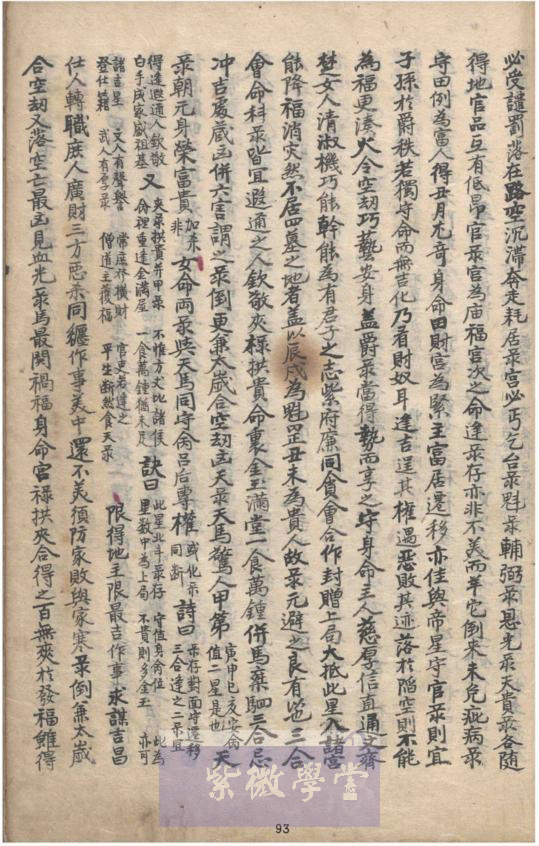 必受譴罰落在路空沉滯奔走耗居录宮必丐乞台录魁录輔弼录恩光录天貴录各隨
得地官品与有低昂官录宮為庙福宮次之命逢录存亦非不美而羊它倒來未免疵病录
守田例為富人得丑月尤奇身命田財宮為緊主富居遷移亦佳與帝星守官录則宜
子孫於爵秩若獨守命而無吉化乃看財奴耳逢吉逞其權遇惡敗其迹落於陷空則不能
為福更湊火令空刼巧藝安身盖爵录當得勢而享之守身命主人慈厚信直通文齊
楚女人清淑機巧能幹能為有君子之志紫府廉同貪會合作封贈上局大抵此星入諸宮
能降福消灾然不居四墓之地者盖以辰戌為魁罡丑未為貴人故录元避之良有㠯也三合
會命科录皆宜遐通之人欽敬夾祿拱貴命裏金玉滿堂一食萬鍾併馬棄駟三合忌
冲吉處歲凶併六害謂之录倒更兼太歲合空刼凶天录天馬驚人甲第 庚申巳亥安病 值二星是也 天
录朝元身榮富貴 加杀 非 女命两录與天馬同守命吕后專權 或化录 同断 詩曰 录存对面守遷移 三合逢之二录宜
得逢遐邇人欽敬 白手成家勝祖基 又 夾录拱貴并甲录 命裡重逢金满屋 不惟方丈比諸侯 一食萬鍾猶未足 訣曰 此星北斗录存 星数中為上局 守值身命位 不貴則多金玉 比為 亦可
諸吉星 登仕籍 文人有聲譽 武人有厚录 常庶祚横財 僧道主獲福 官吏若逢之 平生断然食天录 限得地主限最吉作事求謀吉昌
仕人轉職庶人廣財三方恶杀同纒作事美中還不美須防家敗與家寒录倒兼太歲
合空刼又落空亡最凶見血光录馬最関禍福身命官禄拱夾合得之百無夾於發福雖得
紫微學堂
93